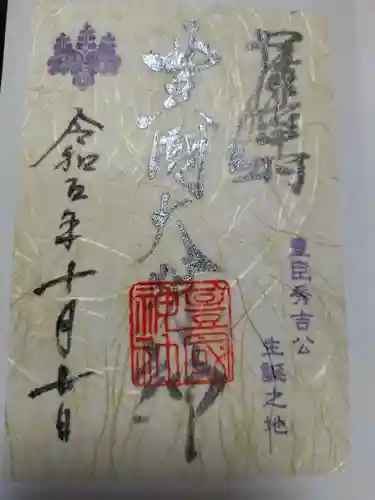 豊臣秀吉公
生誕之地
豊国大明神
豊国神社
令和五年十月七日